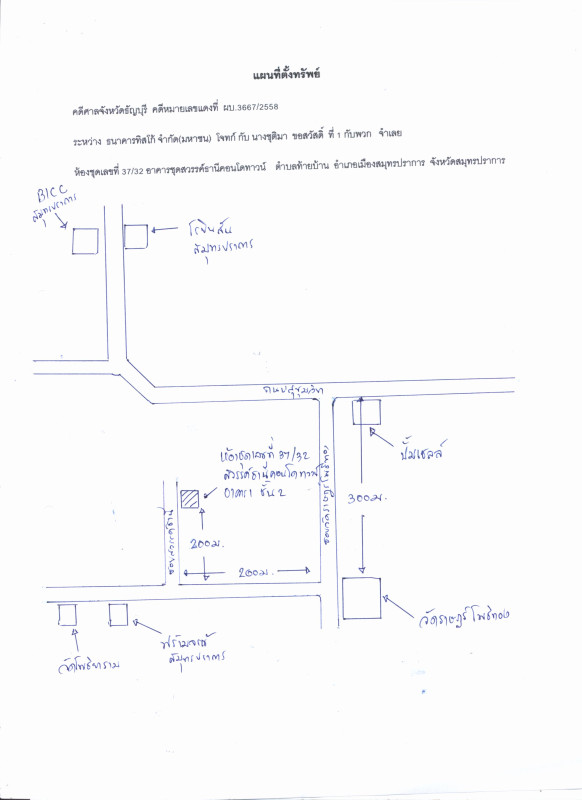 แผนที่ตั้งทรัพย์
คดีศาลจังหวัดธัญบุรี คดีหมายเลขแดงที่ ผบ.3667/2558
ระหว่าง ธนาคารทิสโก้ จำกัด(มหาชน) โจทก์ กับ นางชุติมา ขอสวัสดิ์ ที่ 1 กับพวก จำเลย
ห้องชุดเลขที่ 37/32 อาคารชุดสวรรค์ธานีคอนโดทาวน์ ตำบลท้ายบ้าน อำเภอเมืองสมุทรปราการ จังหวัดสมุทรปราการ
สมุทรปราการ
โรบินสัน
สมุทรปราการ
ถนนสุขุมวิท
ปั๊มเชลล์
ห้องชุดเลขที่ 37/32
สวรรค์ธานีคอนโดทาวน์
อาคาร 1 ชั้น 2
ซอยวัดราษฎร์โพธิ์ทอง
300ม.
200ม.
200ม.
วัดราษฎร์โพธิ์ทอง
วัดโพธิ์
สมุทรปราการ